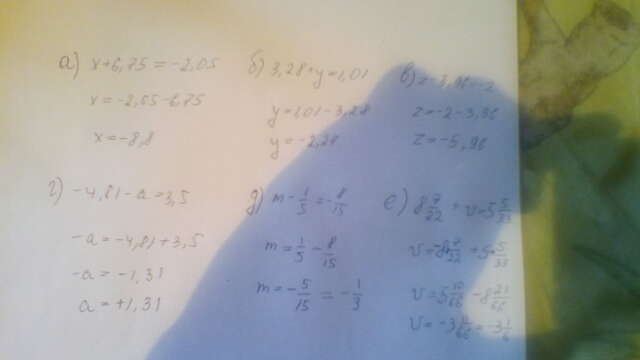 а) x+6,75=-2,05
x=-2,05-6,75
x=-8,8
б) 3,28+y=1,01
y=1,01-3,28
y=-2,28
в)
z=-5,96
г) -4,81-a=3,5
-a=-4,81+3,5
-a=-1,31
a=+1,31
д) m-1/5=-8/15
m=1/5-8/15
m=-5/15=-1/3
е) 8 7/22+v=5 5/33
v=-8 7/22+5 5/33
v=5 10/66-8 21/66
v=-3 11/66=-3 1/6